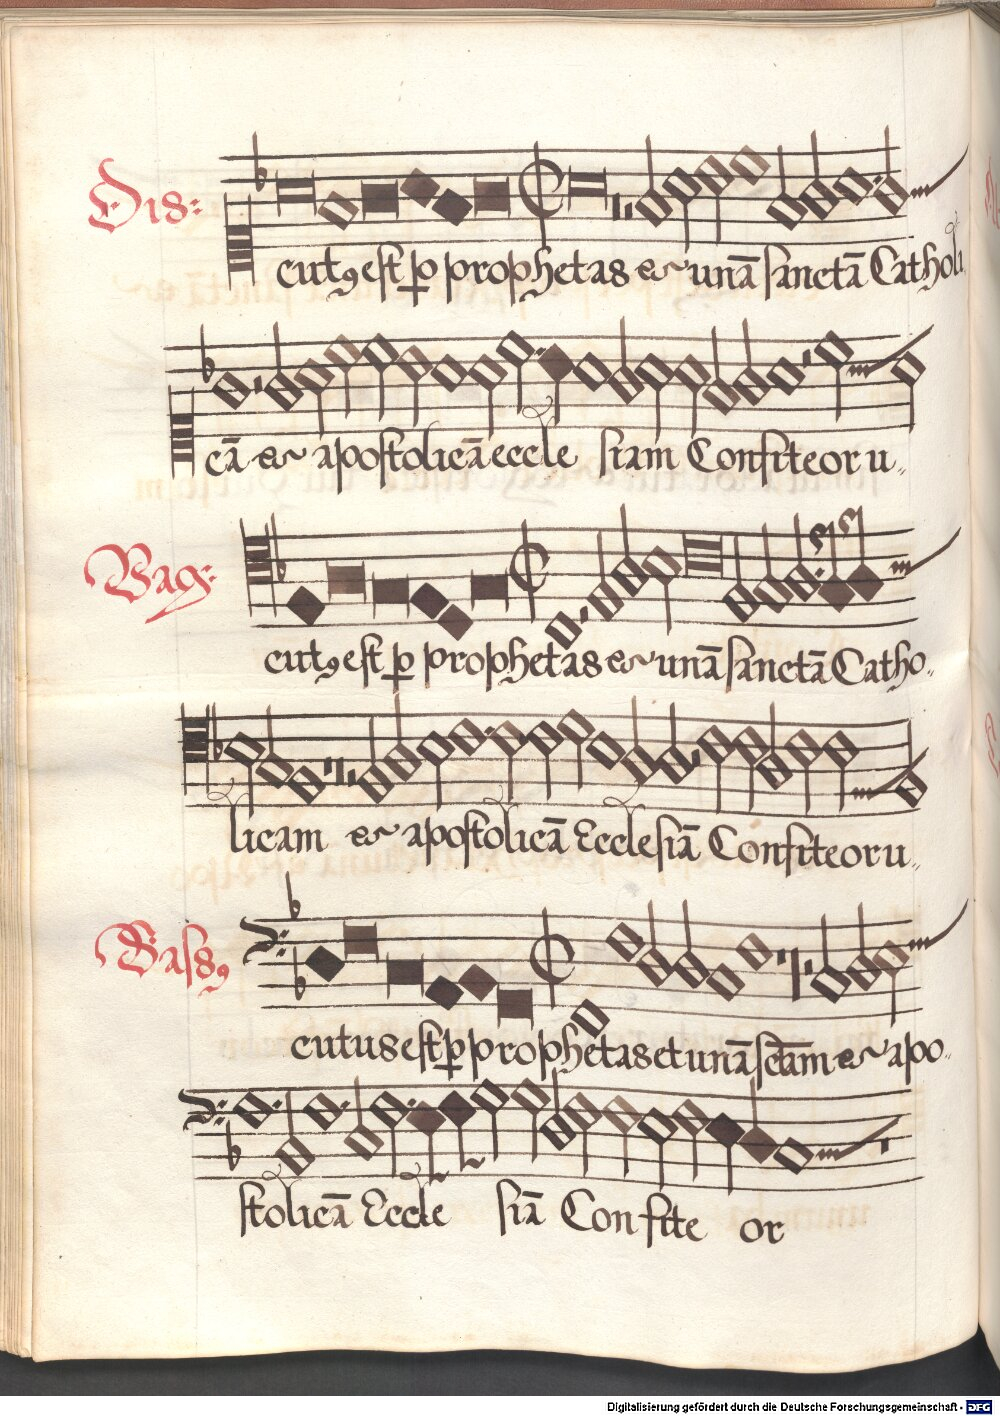 Dis:
cutꝯ est ꝑ prophetas & unā sanctā Catholi
cā & apostolicā eccle siam Confiteor u
Vag:
cutꝯ est ꝑ prophetas & unā sanctā Catho
licam & apostolicā Ecclesiā Confiteor u
Bassꝯ
cutus est ꝑ prophetas et unā sctam & apo
stolicā Eccle siā Confite or
Digitalisierung gefördert durch die Deutsche Forschungsgemeinschaft - DFG